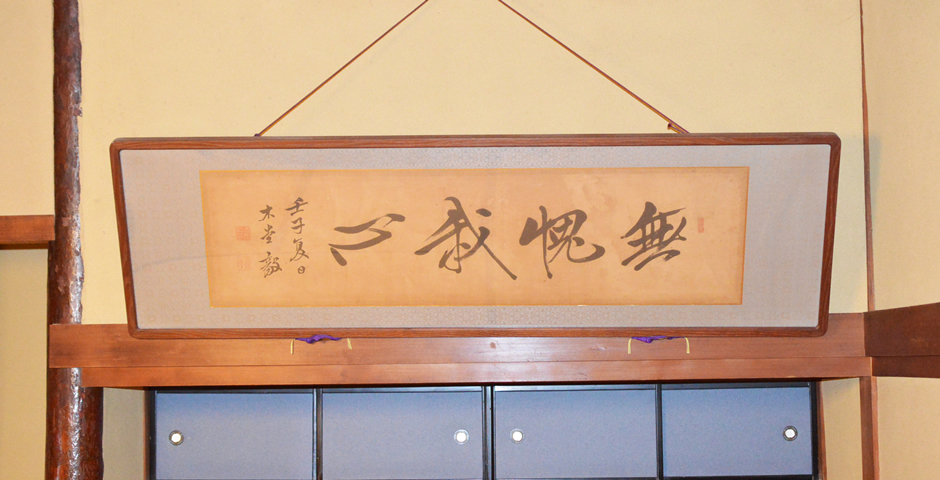 無愧我心
壬子夏日
木堂毅